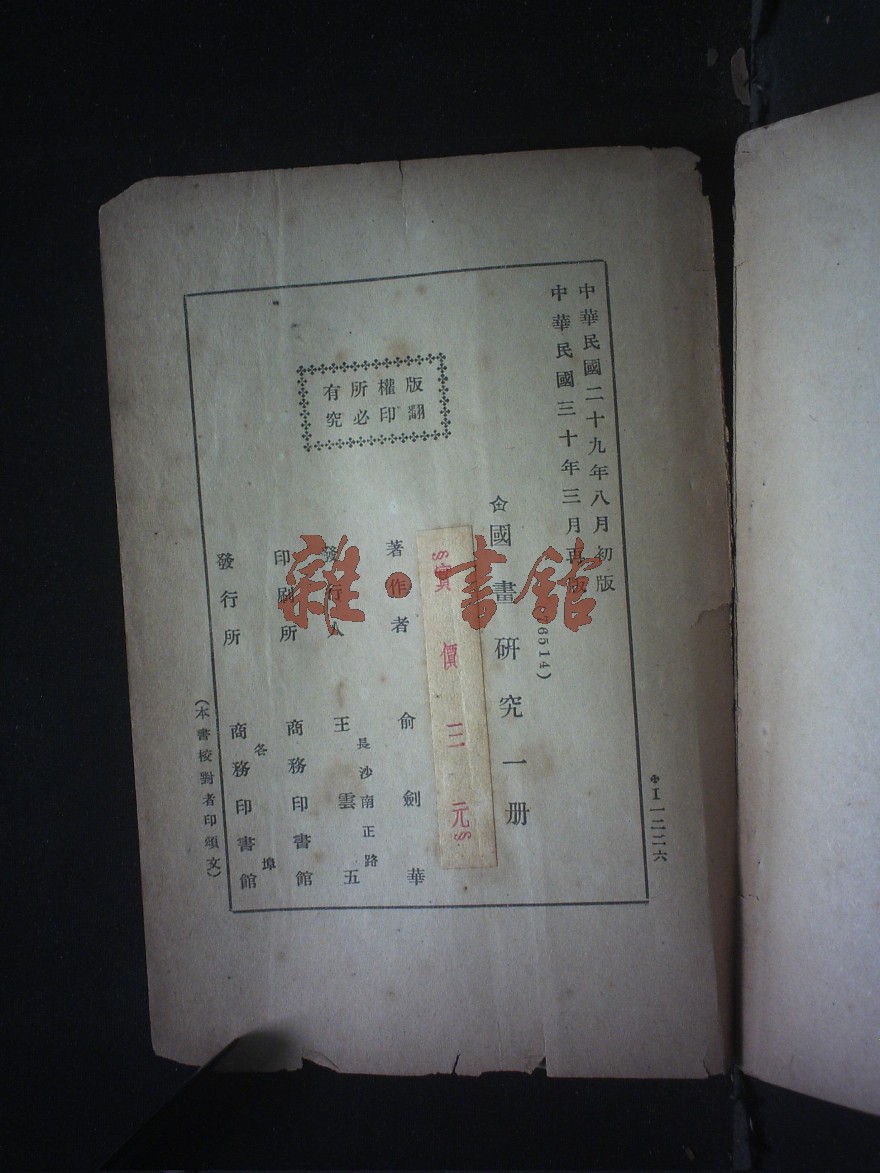 中華民國二十九年八月初版
中華民國三十年三月再版
6514)
國畫研究一册
實價三元
著作者 俞劍華
發行人 王雲五
長沙南正路
印刷所 商務印書館
發行所 各埠 商務印書館
版權所有
翻印必究
(本書校對者印頌文)
I一二二六
雜·書館